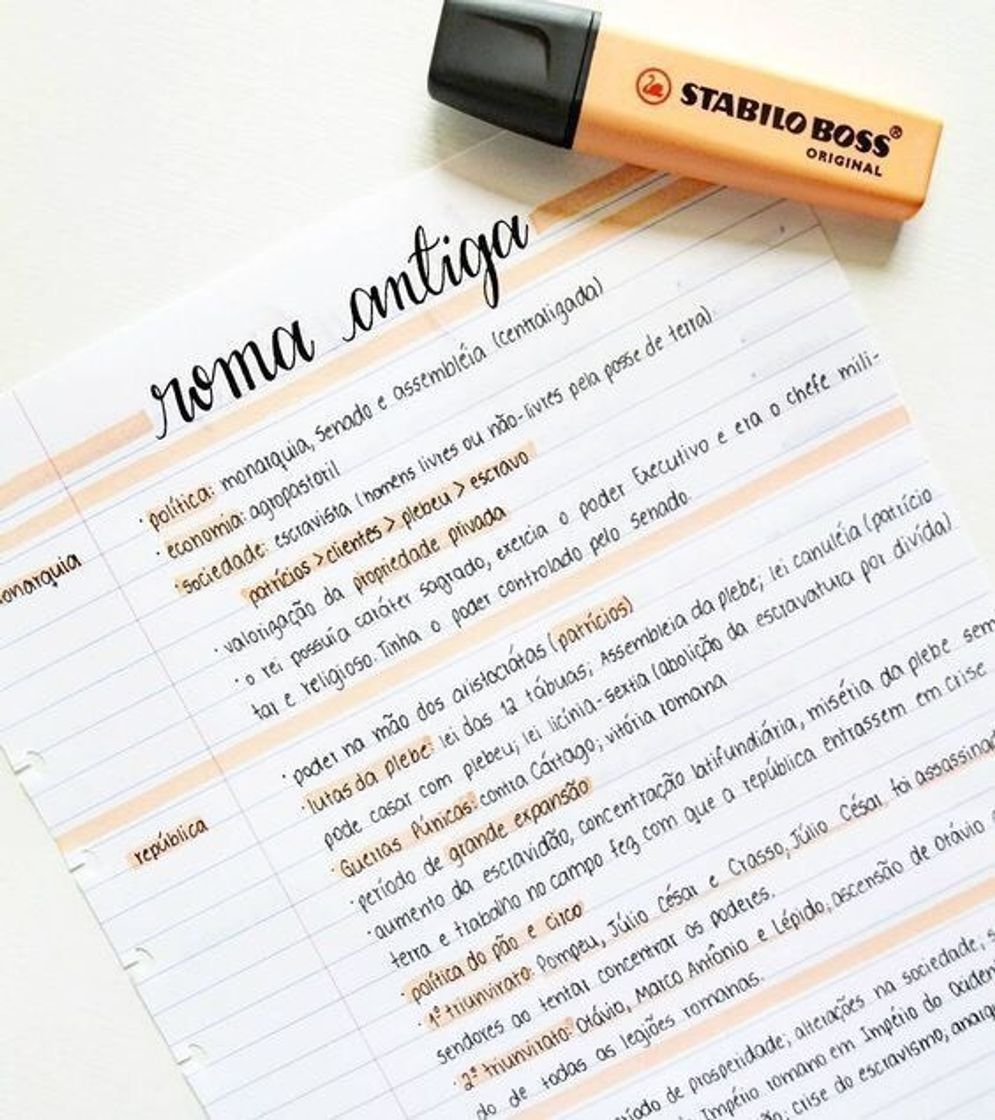 STABILO BOSS®
ORIGINAL
roma antiga
• política: monarquia, senado e assembléia (centralizada)
• economia: agropastoril
• sociedade: escravista (homens livres ou não-livres pela posse de terra)
patrícios > clientes > plebeu > escravo
• valorização da propriedade privada
• o rei possuía caráter sagrado, exercia o poder Executivo e era o chefe mili-
tar e religioso. Tinha o poder controlado pelo Senado.
onarquia
• poder na mão dos aristocrátas (patrícios)
• lutas da plebe: lei das 12 tábuas; Assembleia da plebe; lei canuléia (patrício
pode casar com plebeu; lei licínia-sextia (abolição da escravatura por divída)
• Guerras Púnicas: contra Cártago; vitória romana
república
• período de grande expansão
• aumento da escravidão, concentração latifundiária, miséria da plebe sem
terra e trabalho no campo fez com que a república entrassem em crise
• política do pão e circo
• 1º triunvirato: Pompeu, Júlio césar e Crasso, Júlio César foi assassinad
sendores ao tentar concentrar os poderes.
• 2º triunvirato: Otávio, Marco Antônio e Lépido, ascensão de Otávio
do de todas as legiões romanas.
ríodo de prosperidade; alterações na sociedade;
Império romano em Império do Ociden
crise do escravismo, anarq